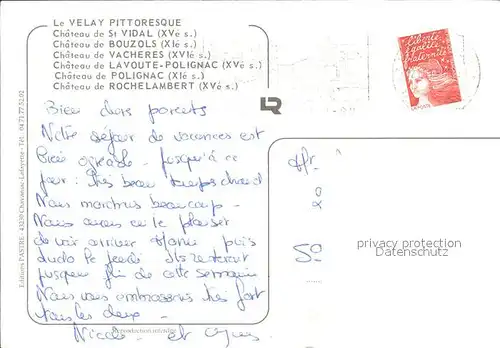 Le VELAY PITTORESQUE
Château de St VIDAL (XVè s.)
Château de BOUZOLS (XIè s.)
Château de VACHERES (XVIè s.)
Château de LAVOUTE-POLIGNAC (XVè s.)
Château de POLIGNAC (XIè s.)
Château de ROCHELAMBERT (XVè s.)
liberté
égalité
fraternité
LR
Bien chers
Notre séjour de vacances est
Bien agréable - jusqu'à ce
jour: très beau temps chaud
Nous marchons beaucoup -
Nous avons eu le plaisir
de voir arriver puis
le jeudi Ils restent
jusqu'en fin de cette semaine
Nous vous embrassons très fort
tous les deux -
Nicole - et
privacy protection
Datenschutz
Editions PASTRE - 43230 Chavaniac-Lafayette - Tél. 04.71.77.52.02
Reproduction interdite